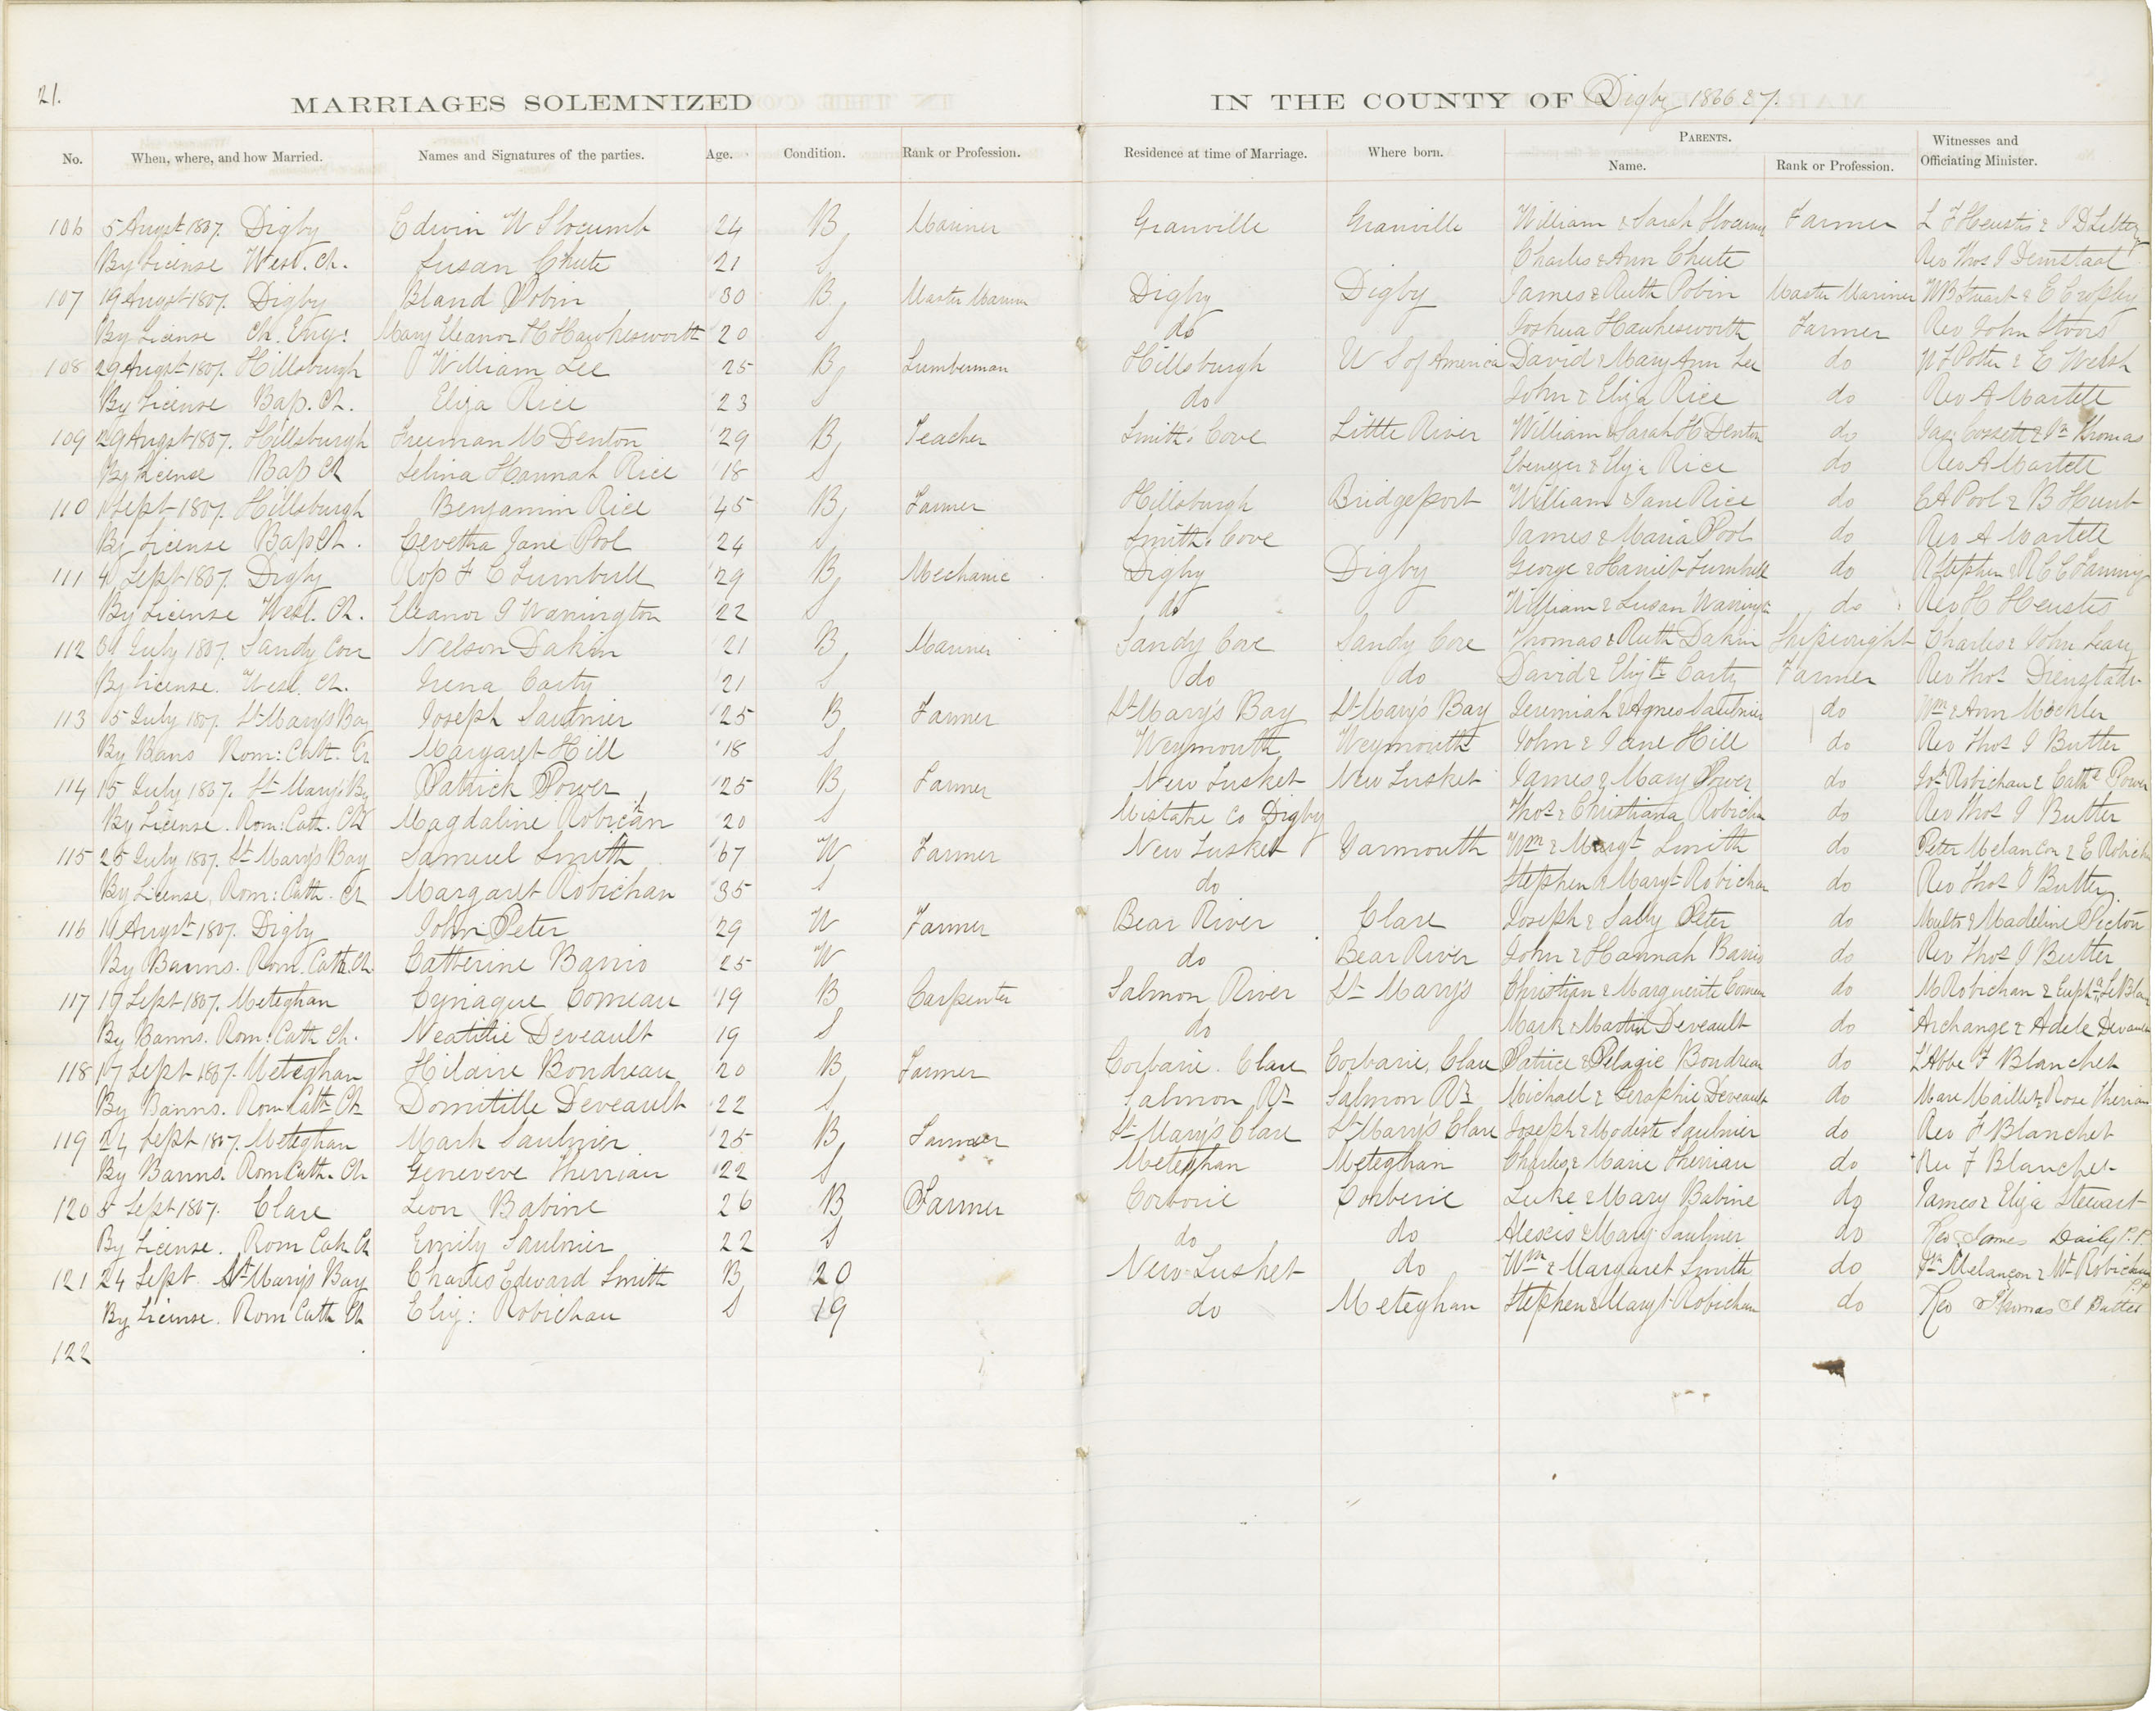 21.
MARRIAGES SOLEMNIZED IN THE COUNTY OF Digby 1866 & 7.
No. When, where, and how Married. Names and Signatures of the parties. Age. Condition. Rank or Profession. Residence at time of Marriage. Where born. PARENTS. Name. Rank or Profession. Witnesses and Officiating Minister.
106 5 Augst 1867. Digby Edwin W Slocumb 24 B Mariner Granville Granville William & Sarah Farmer L F Heustis &
By License Wesl. Ch. Susan Chute 21 S Charles & Ann Chute Rev Thos
107 19 Augst 1867. Digby Bland Robin 30 B Master Digby Digby James & Ruth Robin Master Mariner W B Stuart & E
By License Ch. Eng: Mary Eleanor H Hawkesworth 20 S do Joshua Hawkesworth Farmer Rev John
108 29 Augst 1867. Hillsburgh William Lee 25 B Lumberman Hillsburgh U S of America David & Mary Ann Lee do & E Welsh
By License Bap. Ch. Eliza Rice 23 S do John & Eliza Rice do Rev A Martell
109 29 Augst 1867. Hillsburgh Freeman M Denton 29 B Teacher Smith's Cove Little River William & Sarah H Denton do Jas Cossett & Thomas
By License Bap Ch Selina Hannah Rice 18 S Ebenezer & Eliza Rice do Rev A Martell
110 1 Sept 1867. Hillsburgh Benjamin Rice 45 B Farmer Hillsburgh Bridgeport William & Jane Rice do E A Pool & B Hunt
By License Bap Ch. Cevetha Jane Pool 24 S Smith's Cove James & Maria Pool do Rev A Martell
111 4 Sept 1867. Digby F C Turnbull 29 B Mechanic Digby Digby George & Harriet Turnbull do R Stephen &
By License Wesl. Ch. Eleanor J Warrington 22 S do William & Susan do Rev H Heustis
112 July 1867. Sandy Cove Nelson Dakin 21 B Mariner Sandy Cove Sandy Cove Thomas & Ruth Dakin Shipwright Charles & John
By License. Wesl. Ch. Irena Carty 21 S do do David & Elizth Carty Farmer Rev Thos
113 15 July 1867. St Mary's Bay Joseph Saulnier 25 B Farmer St Mary's Bay St Mary's Bay Jeremiah & Agnes Saulnier do Wm & Ann
By Bans Rom: Cath. Ch Margaret Hill 18 S Weymouth Weymouth John & Jane Hill do Rev Thos J Butler
114 15 July 1867. St Mary's By Patrick Power 25 B Farmer New Tusket New Tusket James & Mary Power do Robichau & Cathe Power
By License. Rom: Cath. Ch Magdaline Robichan 20 S Mistake Co Digby Thos & Christiana Robicha do Rev Thos J Butler
115 25 July 1867. St Mary's Bay Samuel Smith 67 W Farmer New Tusket Yarmouth Wm & Margt Smith do Peter Melancon & E
By License, Rom: Cath. Ch Margaret Robichau 35 S do Stephen & Maryt Robichau do Rev Thos J Butler
116 11 Augst 1867. Digby John Peter 29 W Farmer Bear River Clare Joseph & Sally Peter do & Madeline Picton
By Banns. Rom. Cath. Ch Catherine Barrio 25 W do Bear River John & Hannah Barrio do Rev Thos J Butler
117 17 Sept 1867. Meteghan Cyriaque Comeau 19 B Carpenter Salmon River St Mary's Christian & Marguerite Comeau do M Robichau &
By Banns. Rom: Cath Ch. Neatilie Deveault 19 S do Mark & Deveault do Archange & Adele
118 17 Sept 1867. Meteghan Hilaire Boudreau 20 B Farmer Corbarie. Clare Corbarie, Clare Patrice & Pelagie Boudreau do L'Abbe F Blanchet
By Banns. Rom Cath Ch Domitille Deveault 22 S Salmon Rr Salmon Rr Michael & Seraphie Deveault do Marc Maillet & Rose
119 24 Sept 1867. Meteghan Mark Saulnier 25 B Farmer St Mary's Clare St Mary's Clare Joseph & Modeste Saulnier do Rev F Blanchet
By Banns. Rom Cath. Ch Genevieve Therriau 22 S Meteghan Meteghan Charles & Marie Therriau do Rev F Blanchet
120 8 Sept 1867. Clare Leon Babine 26 B Farmer Corborie Corberie Luke & Mary Babine do James & Eliza Stewart
By License. Rom Cath Ch Emily Saulnier 22 S do do Alexis & Mary Saulnier do Rev James Daily P. P.
121 24 Sept. St Mary's Bay Charles Edward Smith B 20 New Tusket do Wm & Margaret Smith do Melancon & Robichau
By License. Rom Cath Ch Eliz: Robichau S 19 do Meteghan Stephen & Maryt Robichau do Rev Thomas J Butler P.P.
122